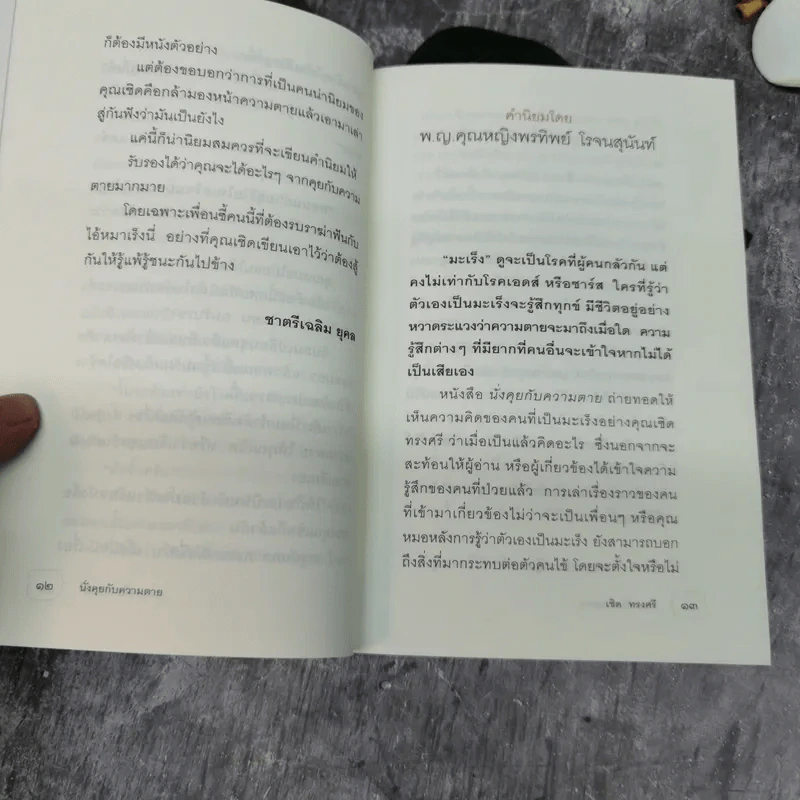 ก็ต้องมีหนังตัวอย่าง
แต่ต้องขอบอกว่าการที่เป็นคนน่านิยมของ
คุณเชิดคือกล้ามองหน้าความตายแล้วเอามาเล่า
สู่กันฟังว่ามันเป็นยังไง
แค่นี้ก็น่านิยมสมควรที่จะเขียนคำนิยมให้
รับรองได้ว่าคุณจะได้อะไรๆ จากคุยกับความ
ตายมากมาย
โดยเฉพาะเพื่อนซี้คนนี้ที่ต้องรบราฆ่าฟันกับ
ไอ้หมาเร็งนี่ อย่างที่คุณเชิดเขียนเอาไว้ว่าต้องสู้
กันให้รู้แพ้รู้ชนะกันไปข้าง
ชาตรีเฉลิม ยุคล
๑๒ นั่งคุยกับความตาย
คำนิยมโดย
พ.ญ.คุณหญิงพรทิพย์ โรจนสุนันท์
“มะเร็ง” ดูจะเป็นโรคที่ผู้คนกลัวกัน แต่
คงไม่เท่ากับโรคเอดส์ หรือซาร์ส ใครที่รู้ว่า
ตัวเองเป็นมะเร็งจะรู้สึกทุกข์ มีชีวิตอยู่อย่าง
หวาดระแวงว่าความตายจะมาถึงเมื่อใด ความ
รู้สึกต่างๆ ที่มียากที่คนอื่นจะเข้าใจหากไม่ได้
เป็นเสียเอง
หนังสือ นั่งคุยกับความตาย ถ่ายทอดให้
เห็นความคิดของคนที่เป็นมะเร็งอย่างคุณเชิด
ทรงศรี ว่าเมื่อเป็นแล้วคิดอะไร ซึ่งนอกจากจะ
สะท้อนให้ผู้อ่าน หรือผู้เกี่ยวข้องได้เข้าใจความ
รู้สึกของคนที่ป่วยแล้ว การเล่าเรื่องราวของคน
ที่เข้ามาเกี่ยวข้องไม่ว่าจะเป็นเพื่อนๆ หรือคุณ
หมอหลังการรู้ว่าตัวเองเป็นมะเร็ง ยังสามารถบอก
ถึงสิ่งที่มากระทบต่อตัวคนไข้ โดยจะตั้งใจหรือไม่
เชิด ทรงศรี ๑๓